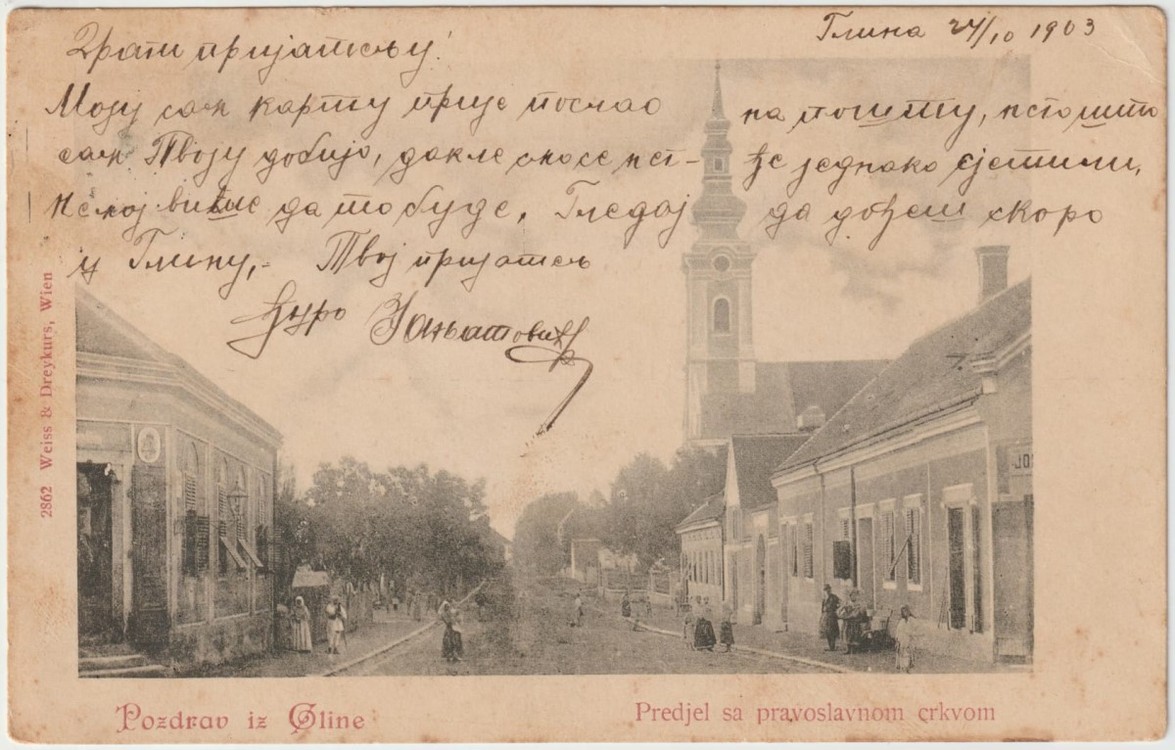 Глина 24/10 1903
Драги пријатељу!
Моју сам карту прије послао на пошту, него што
сам Твоју добијо, дакле смо се не- ђе једнако сјетили,
Немој више да то буде. Гледај да дођеш скоро
у Глину,- Твој пријатељ
Ђуро
2862 Weiss & Dreykurs, Wien
JO
Pozdrav iz Gline
Predjel sa pravoslavnom crkvom